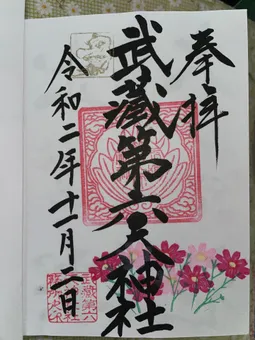 奉拝
武蔵第六天神社
令和二年十一月二日